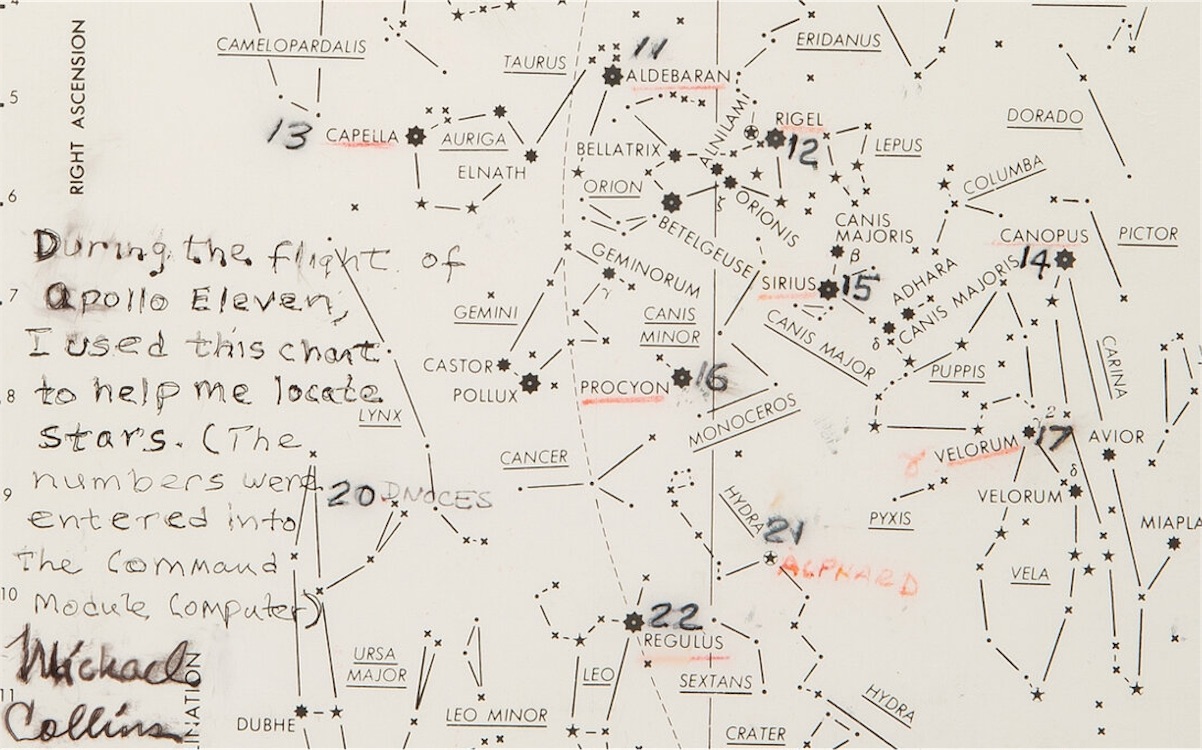 4
CAMELOPARDALIS
TAURUS
11
ALDEBARAN
ERIDANUS
RIGHT ASCENSION
5
13 CAPELLA
AURIGA
ELNATH
BELLATRIX
ALNILAM
RIGEL
12
LEPUS
DORADO
6
ORION
ζ ORIONIS
BETELGEUSE
COLUMBA
CANIS
MAJORIS
β
CANOPUS
14
PICTOR
During the flight of
Apollo Eleven,
I used this chart
to help me locate
stars. (The
numbers were
entered into
the Command
Module Computer)
Michael
Collins
7
GEMINORUM
γ
GEMINI
SIRIUS 15
ADHARA
δ CANIS MAJORIS
CANIS
MINOR
CANIS MAJOR
CARINA
CASTOR
POLLUX
PROCYON 16
PUPPIS
8
LYNX
MONOCEROS
CANCER
γ VELORUM 17
2
AVIOR
9
20 DNOCES
HYDRA
21
ALPHARD
δ
VELORUM
PYXIS
MIAPLA
VELA
10
22
REGULUS
URSA
MAJOR
LEO
SEXTANS
11
DUBHE
LEO MINOR
CRATER
HYDRA
INATION